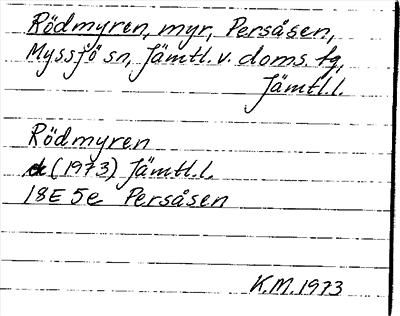 Rödmyren, myr, Persåsen,
Myssjö sn, Jämtl. v. doms. fg,
Jämtl.l.
Rödmyren
(1973) Jämtl.l.
18E 5e Persåsen
K.M. 1973